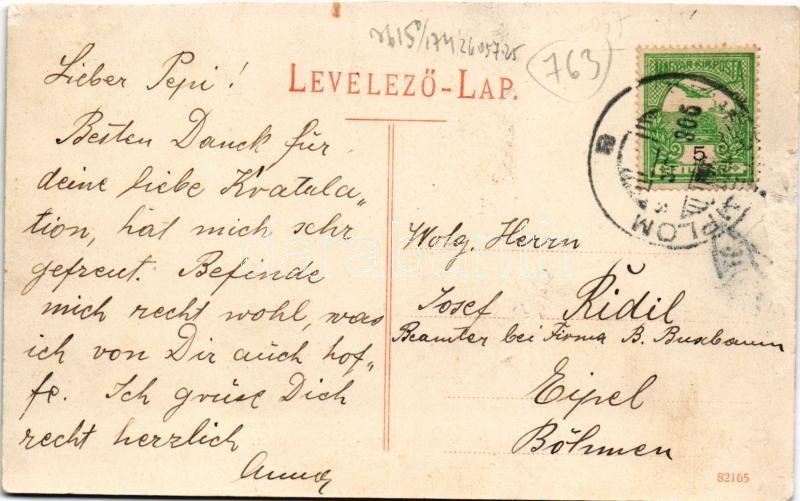 763
LEVELEZŐ-LAP.
MAGYAR KIR. POSTA
5
Lieber Pepi!
Besten Danck für
deine liebe Kratula„
tion, hat mich sehr
gefreut. Befinde
mich recht wohl, was
ich von Dir auch hof„
fe. Ich grüse Dich
recht herzlich
Anna
Wolg. Herrn
Josef Řidil
Beamter bei Firma B. Buxbaum
Eipel
Böhmen
82165